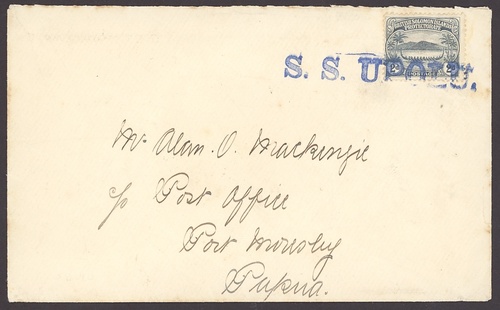 BRITISH SOLOMON ISLANDS
PROTECTORATE
POSTAGE
S. S. UPOLU.
Mr Alan. O. Mackenzie
c/o Post Office
Port Moresby
Papua.